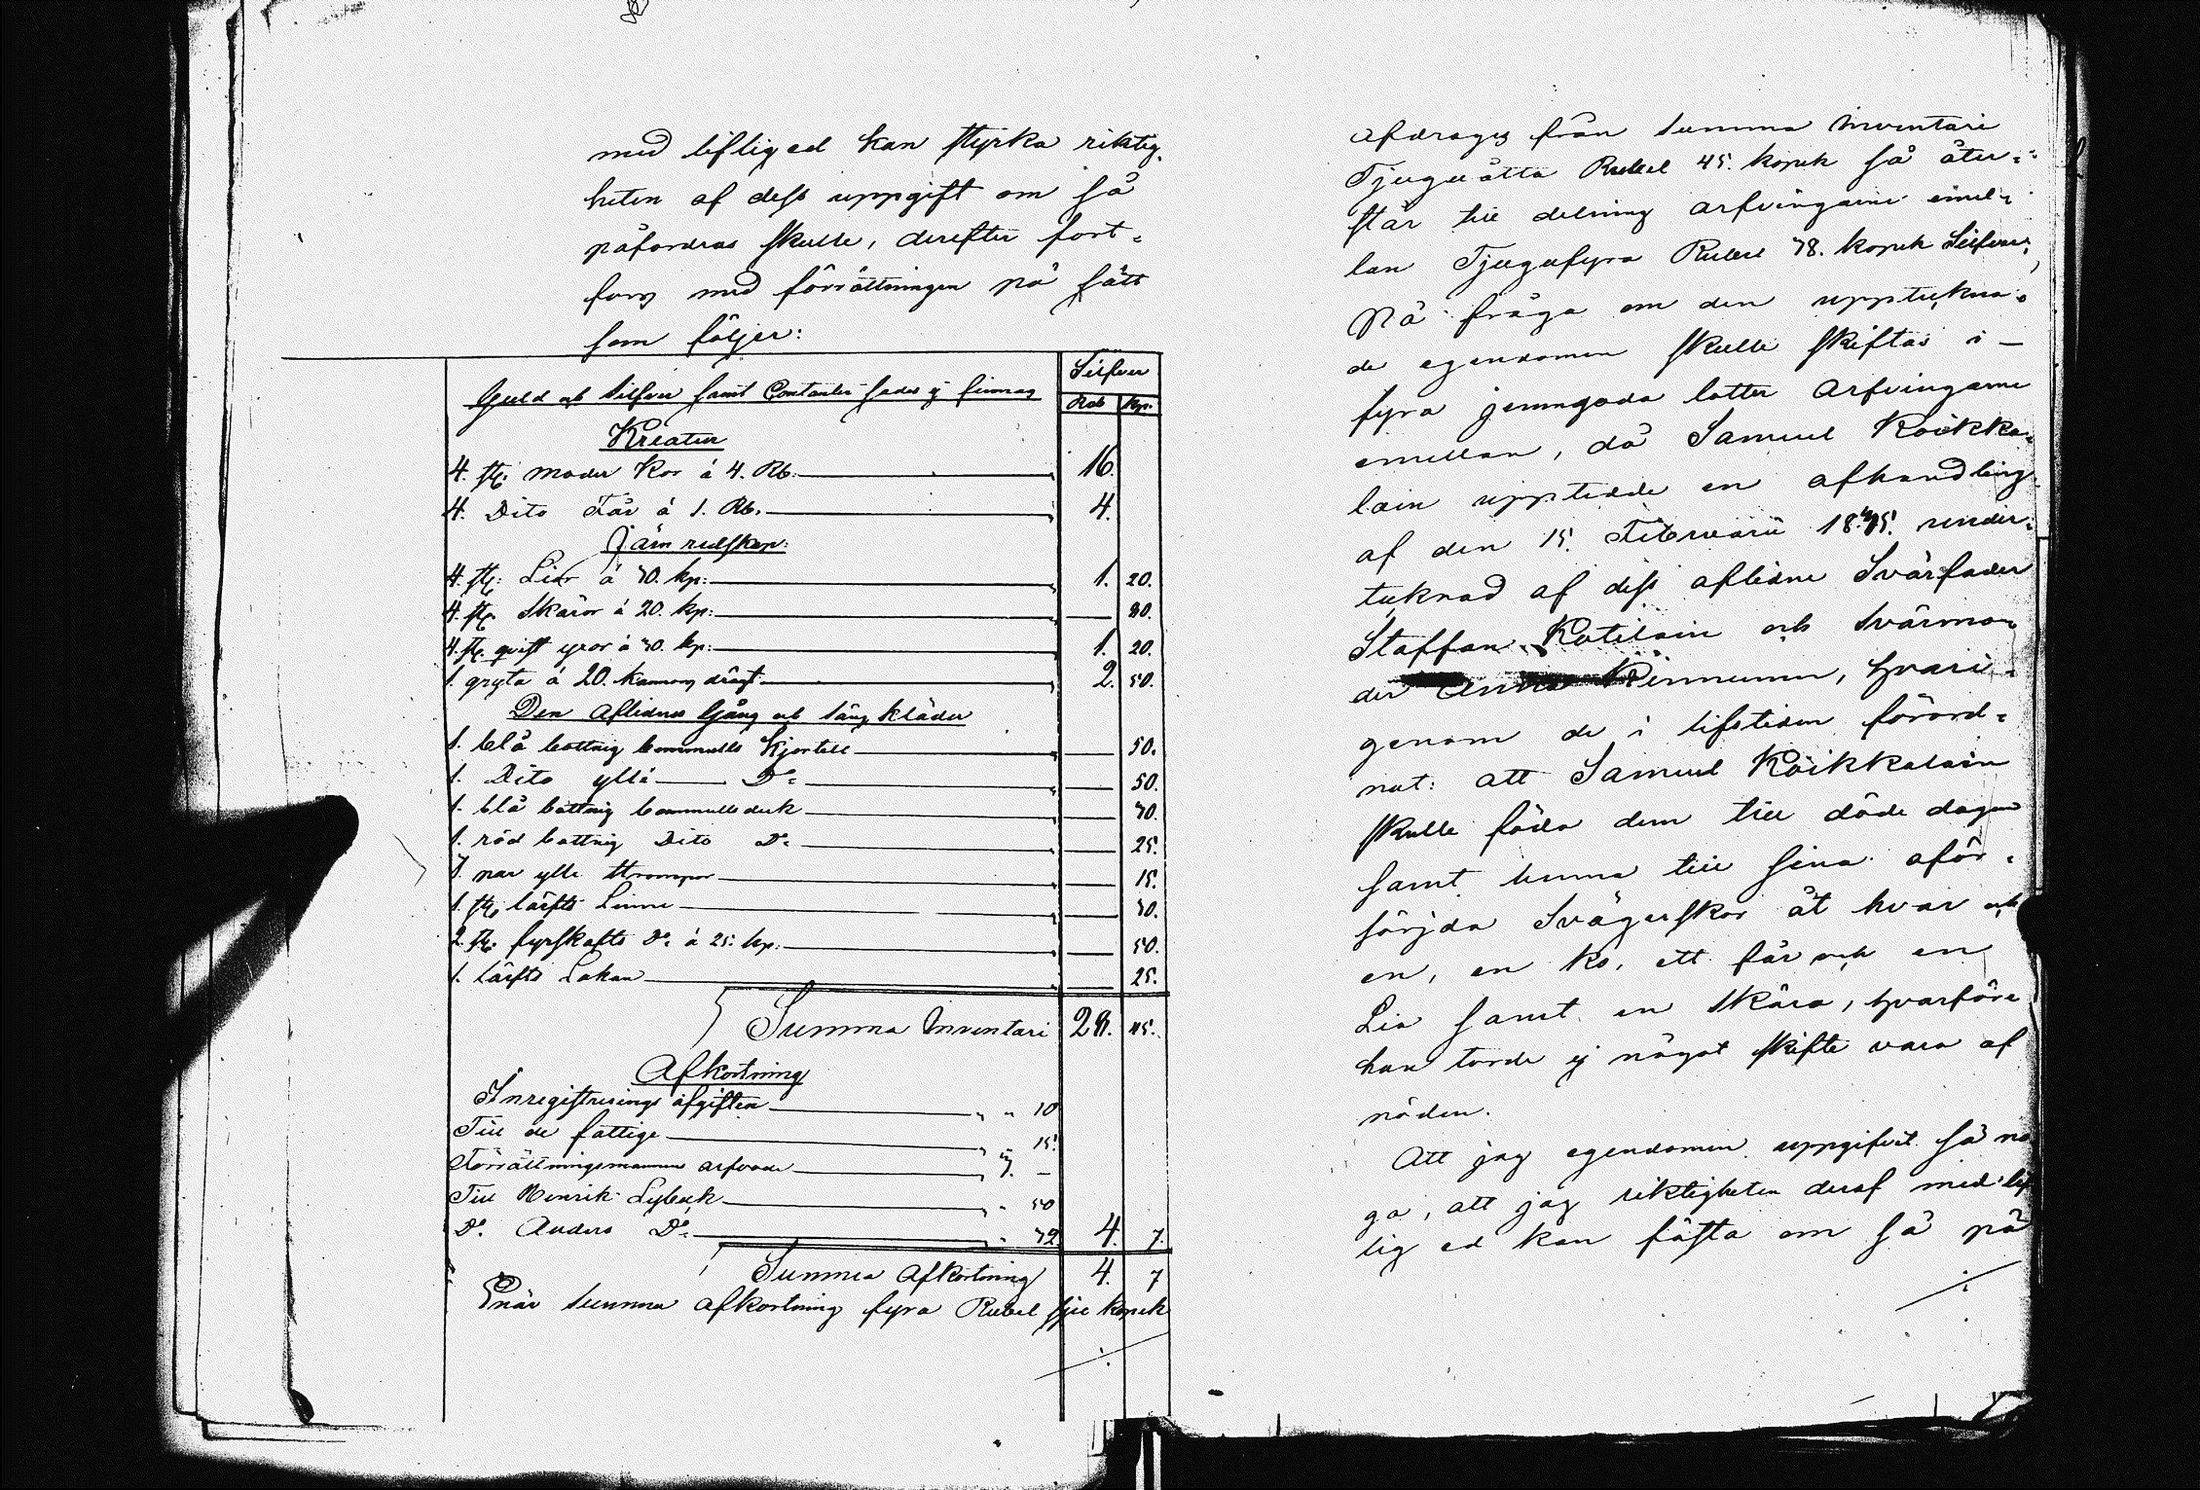 med liflig ed kan styrka riktig-
heten af dess uppgift om så
påfordras skulle, derefter fort-
forsp med förrättningen på sätt
som följer:
Silfver
Guld och Silfver samt Contanter sades ej finnas
Rub kp.
Kreatur
4. st. moder Kor á 4. Rb. 16.
4. Dito Får á 1. Rb. 4.
Järn redskap:
4. st: Liar á 30. kp: 1. 20.
4. st. Skäror á 20. kp: 80.
4. st. qvist yxor á 30. kp: 1. 20.
1. gryta á 20. kannors drägt 2. 50.
Den Aflidnes Gång och Säng kläder
1. blå bottnig bommulls Kjortell 50.
1. Dito ylle D:o 50.
1. blå bottnig bommulls duk 30.
1. röd bottnig Dito D:o 25.
1. par ylle strumpor 15.
1. st. lärfts Linne 30.
2. st. fyrskafts D:o á 25. kp. 50.
1. lärfts Lakan 25.
Summa Inventari 28. 45.
Afkortning
Inregistrerings afgiften " " 10
Till de fattige " 15.
Förrättningsmannens arfvode " 3. —
Till Henrik Lyback " " 50
D:o Anders D:o " " 32. 4. 7.
Summa Afkortning 4. 7
Enär Summa afkortning fyra Rubel sju kopek
./.
afdrages från Summa Inventari
Tjuguåtta Rubel 45. kopek så åter-
står till delning arfvingarne imel-
lan Tjugufyra Rubel 38. kopek Silfver,
På fråga om den uppteckna-
de egendomen skulle skiftas i —
fyra jemngoda lotter Arfvingarne
emellan, då Samuel Koikka-
lain uppteedde en afhandling
af den 15. Februarii 1845. under-
tecknad af dess aflidne Svärfader
Staffan Kotilain och Svärmo-
der Anna Kinnunen, hvari-
genom de i lifstiden förord-
nat: att Samuel Koikkalain
skulle föda dem till döde dagar
samt lemna till sina oför-
sörjda Svägerskor åt hvar och
en, en ko, ett får och en
Lia samt en Skära, hvarföre
han torde ej något skifte vara af
nöden.
Att jag egendomen uppgifvit så no
ga, att jag riktigheten deraf med lif
lig ed kan fästa om så på
./.